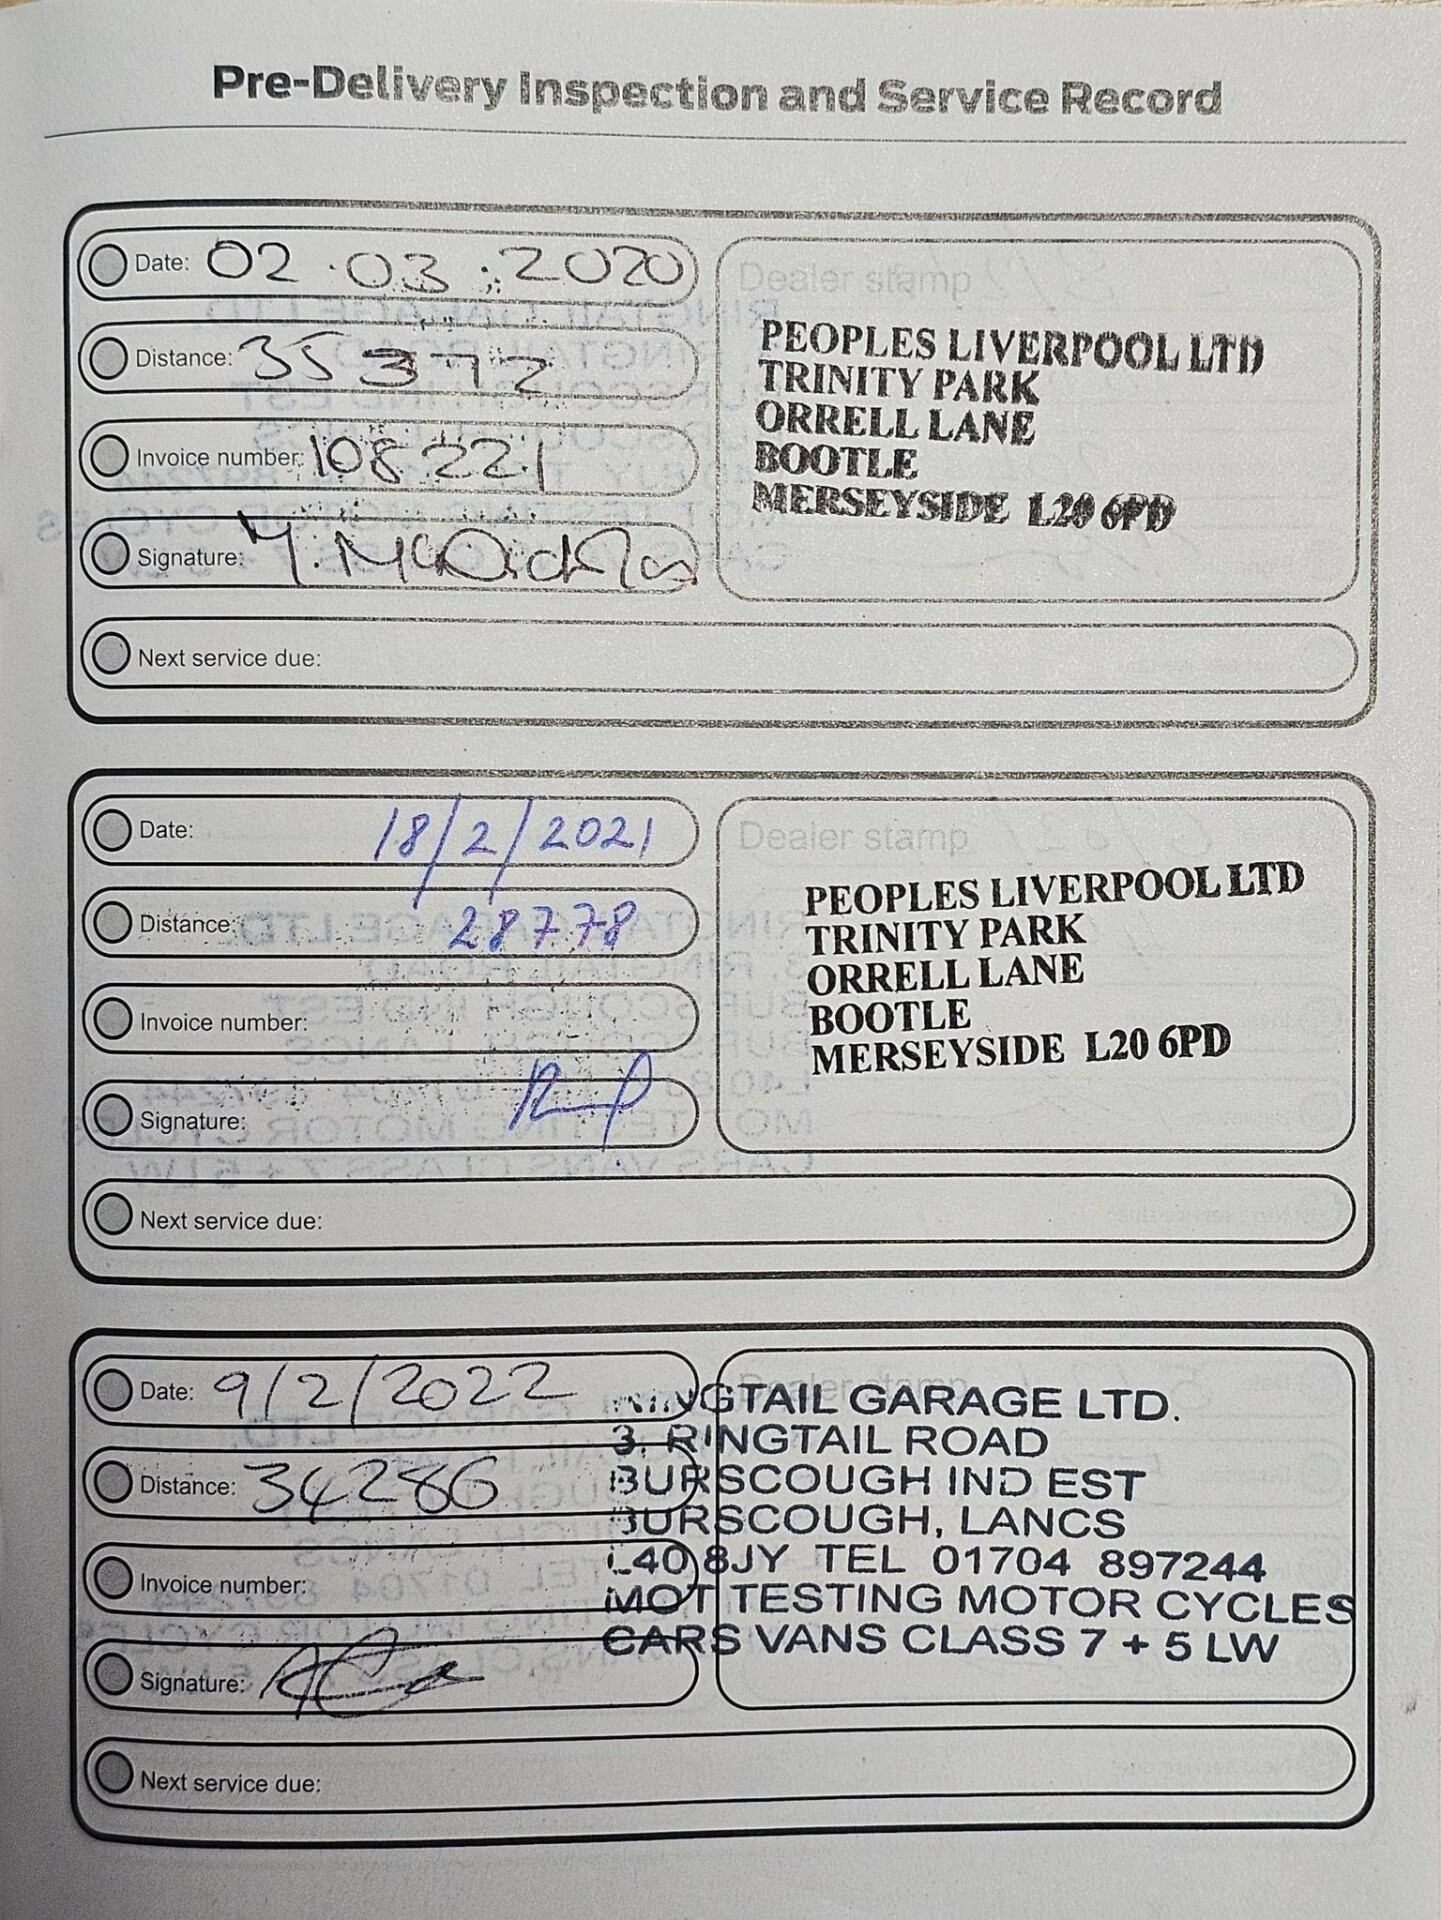 Pre-Delivery Inspection and Service Record
Date: 02.03.2020
Distance: 35372
Invoice number: 108221
Signature:
Next service due:
Dealer stamp
PEOPLES LIVERPOOL LTD
TRINITY PARK
ORRELL LANE
BOOTLE
MERSEYSIDE L20 6PD
Date: 18/2/2021
Distance: 28778
Invoice number:
Signature:
Next service due:
Dealer stamp
PEOPLES LIVERPOOL LTD
TRINITY PARK
ORRELL LANE
BOOTLE
MERSEYSIDE L20 6PD
Date: 9/2/2022
Distance: 34286
Invoice number:
Signature:
Next service due:
Dealer stamp
RINGTAIL GARAGE LTD.
3, RINGTAIL ROAD
BURSCOUGH IND EST
BURSCOUGH, LANCS
L40 8JY TEL 01704 897244
MOT TESTING MOTOR CYCLES
CARS VANS CLASS 7 + 5 LW